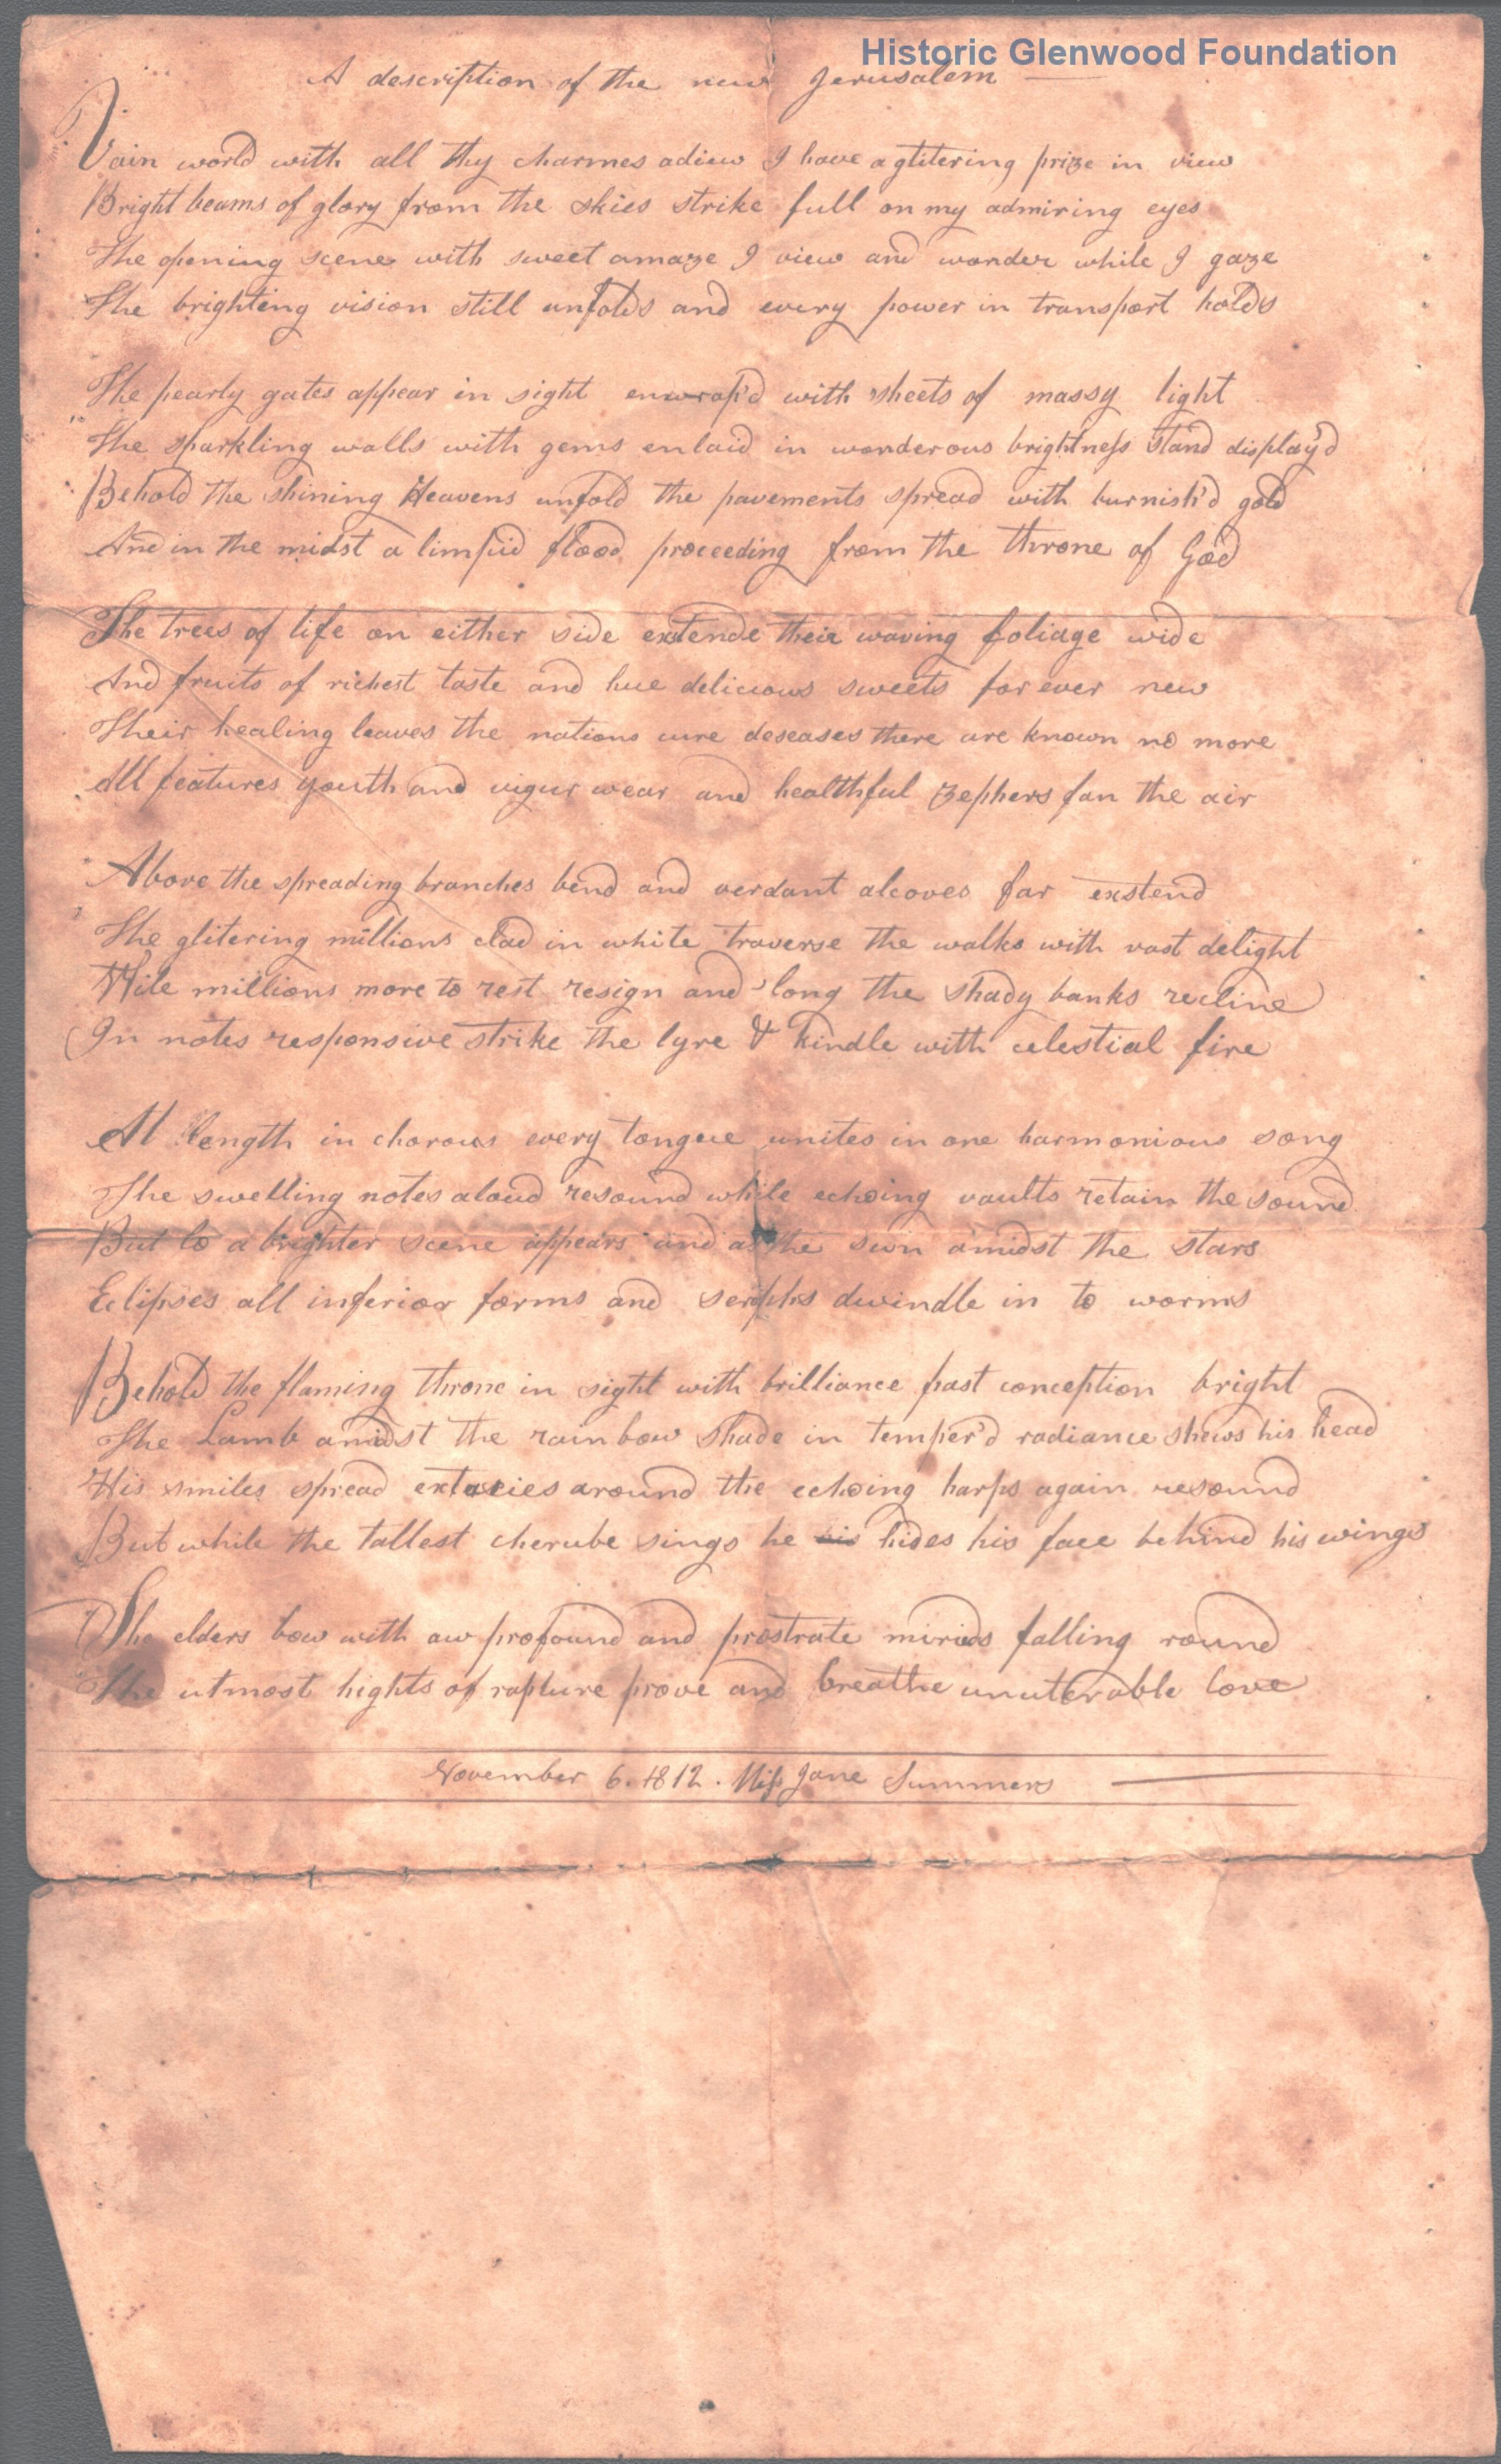 Historic Glenwood Foundation
A description of the new Jerusalem
Vain world with all thy charmes adieu I have a glitering prize in view
Bright beams of glory from the skies strike full on my admiring eyes
The opening scene with sweet amaze I view and wonder while I gaze
The brighting vision still unfolds and every power in transport holds
The pearly gates appear in sight enwrap'd with sheets of massy light
The sparkling walls with gems enlaid in wonderous brightness stand display'd
Behold the shining Heavens unfold the pavements spread with burnish'd gold
And in the midst a limpid flood proceeding from the throne of God
The trees of life on either side extende their waving foliage wide
And fruits of richest taste and hue delicious sweets for ever new
Their healing leaves the nations cure deseases there are known no more
All features youth and vigur wear and healthful zephers fan the air
Above the spreading branches bend and verdant alcoves far exstend
The glitering millions clad in white traverse the walks with vast delight
Wile millions more to rest resign and 'long the shady banks recline
In notes responsive strike the lyre & kindle with celestial fire
At length in chorous every tongue unites in one harmonious song
The swelling notes aloud resound while echoing vaults retain the sound
But lo a brighter scene appears and as the sun amidst the stars
Eclipses all inferior forms and serphs dwindle in to worms
Behold the flaming throne in sight with brilliance past conception bright
The Lamb amidst the rainbow shade in temper'd radiance shews his head
His smiles spread extacies around the echoing harps again resound
But while the tallest cherube sings he his hides his face behind his wings
The elders bow with aw profound and prostrate miriads falling round
The utmost hights of rapture prove and breathe unuterable love
November 6. 1812. Miss Jane Summers